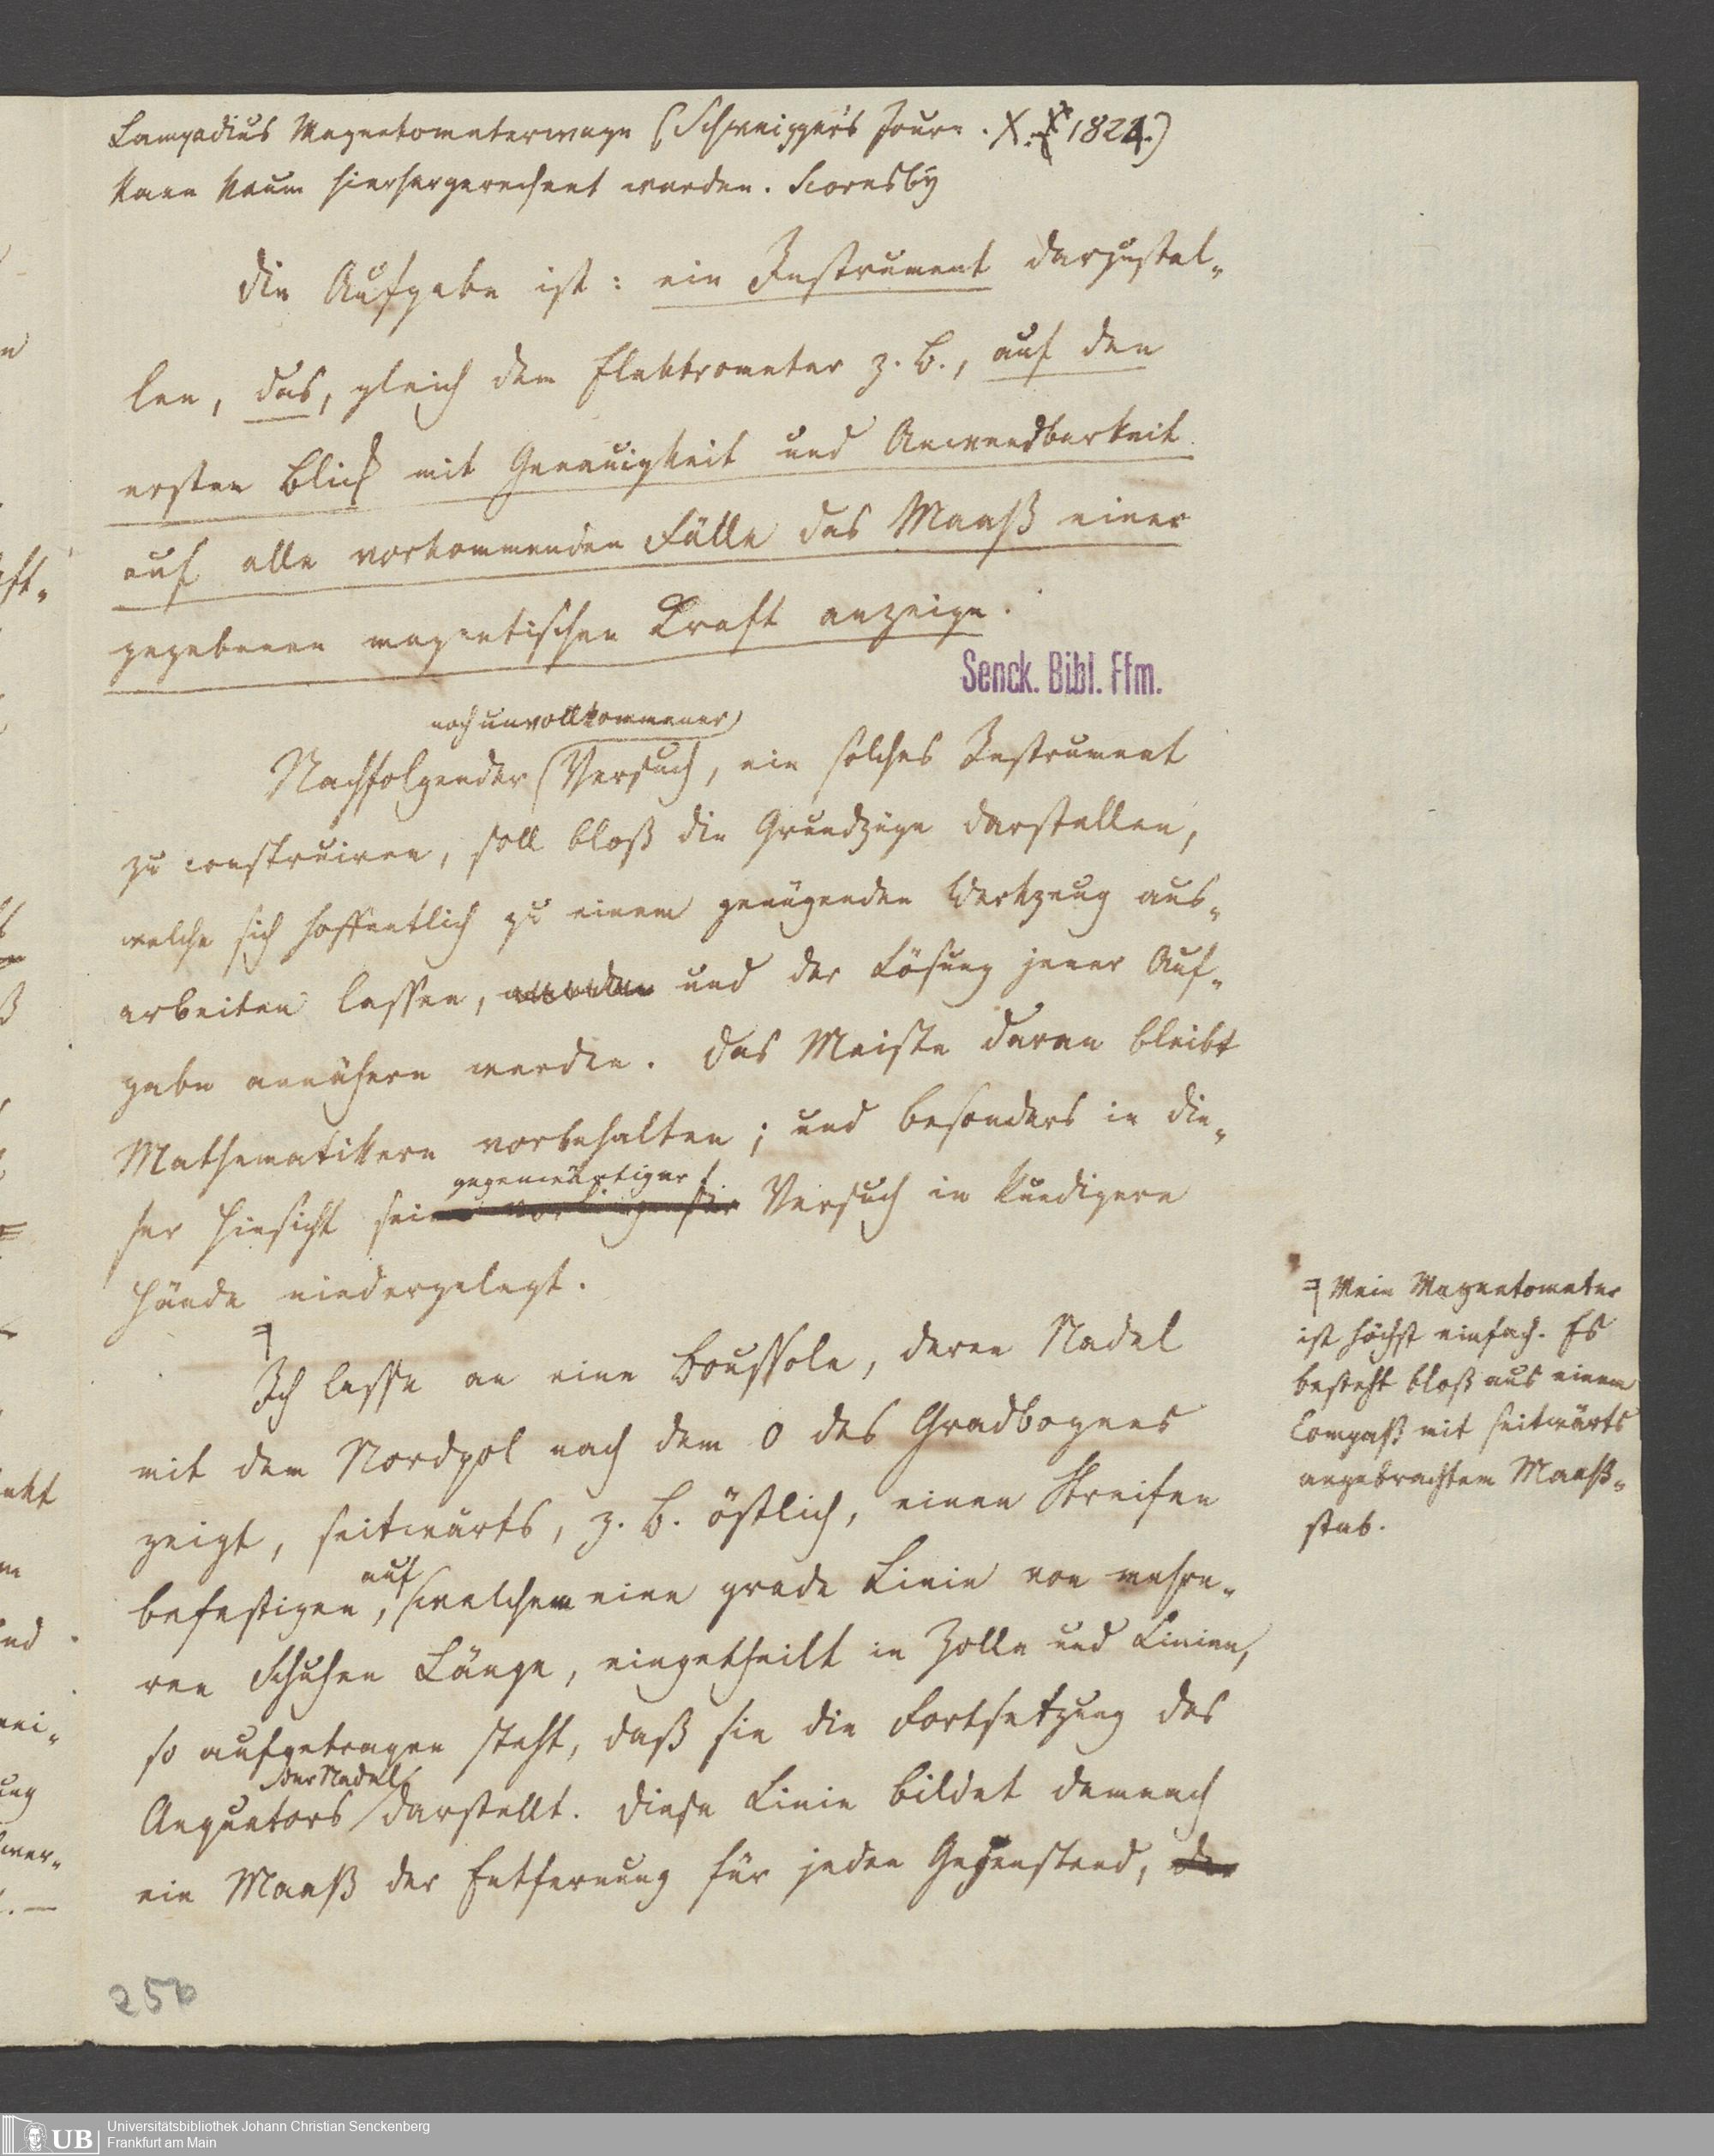 Lampadius Magnetometerwage (Schweigger's Journ. X. 1821.)
kann kaum hierhergerechnet werden. Scoresby
Die Aufgabe ist: ein Instrument darzustel-
len, das, gleich dem Elektrometer z. B., auf den
ersten Blick mit Genauigkeit und Anwendbarkeit
auf alle vorkommenden Fälle das Maaß einer
gegebenen magnetischen Kraft anzeige.
Senck. Bibl. Ffm.
noch unvollkommener
Nachfolgender Versuch, ein solches Instrument
zu construiren, soll bloß die Grundzüge darstellen,
welche sich hoffentlich zu einem genügenden Werkzeug aus-
arbeiten lassen, und der Lösung jener Auf-
gabe annähern werden. Das Meiste daran bleibt
Mathematikern vorbehalten; und besonders in die-
gegenwärtiger
ser Hinsicht sei Versuch in kundigere
Hände niedergelegt.
Ich lasse an eine Boussole, deren Nadel
mit dem Nordpol nach dem 0 des Gradbogens
zeigt, seitwärts, z. B. östlich, einen Streifen
auf
befestigen, welchem eine grade Linie von mehre-
ren Schuhen Länge, eingetheilt in Zolle und Linien,
so aufgetragen steht, daß sie die Fortsetzung des
der Nadel
Aequators darstellt. Diese Linie bildet demnach
ein Maaß der Entfernung für jeden Gegenstand, der
Mein Magnetometer
ist höchst einfach. Es
besteht bloß aus einem
Compaß mit seitwärts
angebrachtem Maaß-
stab.
250
UB Universitätsbibliothek Johann Christian Senckenberg
Frankfurt am Main